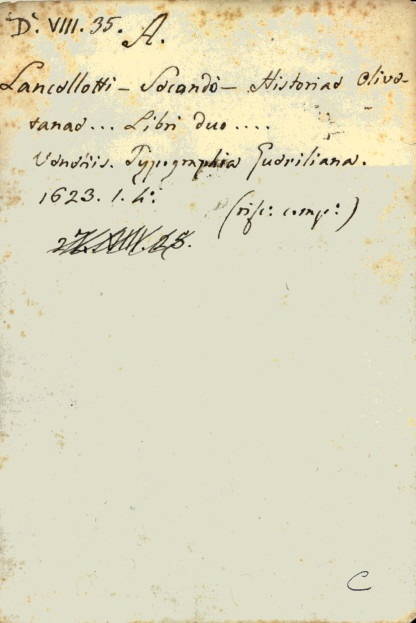 D'. VIII. 35. A.
Lancellotti – Secondo – Historiae Olive-
tanae... Libri duo....
Venetiis. Typographia Gueriliana.
1623. 1. 4:
(rif: comp:)
C